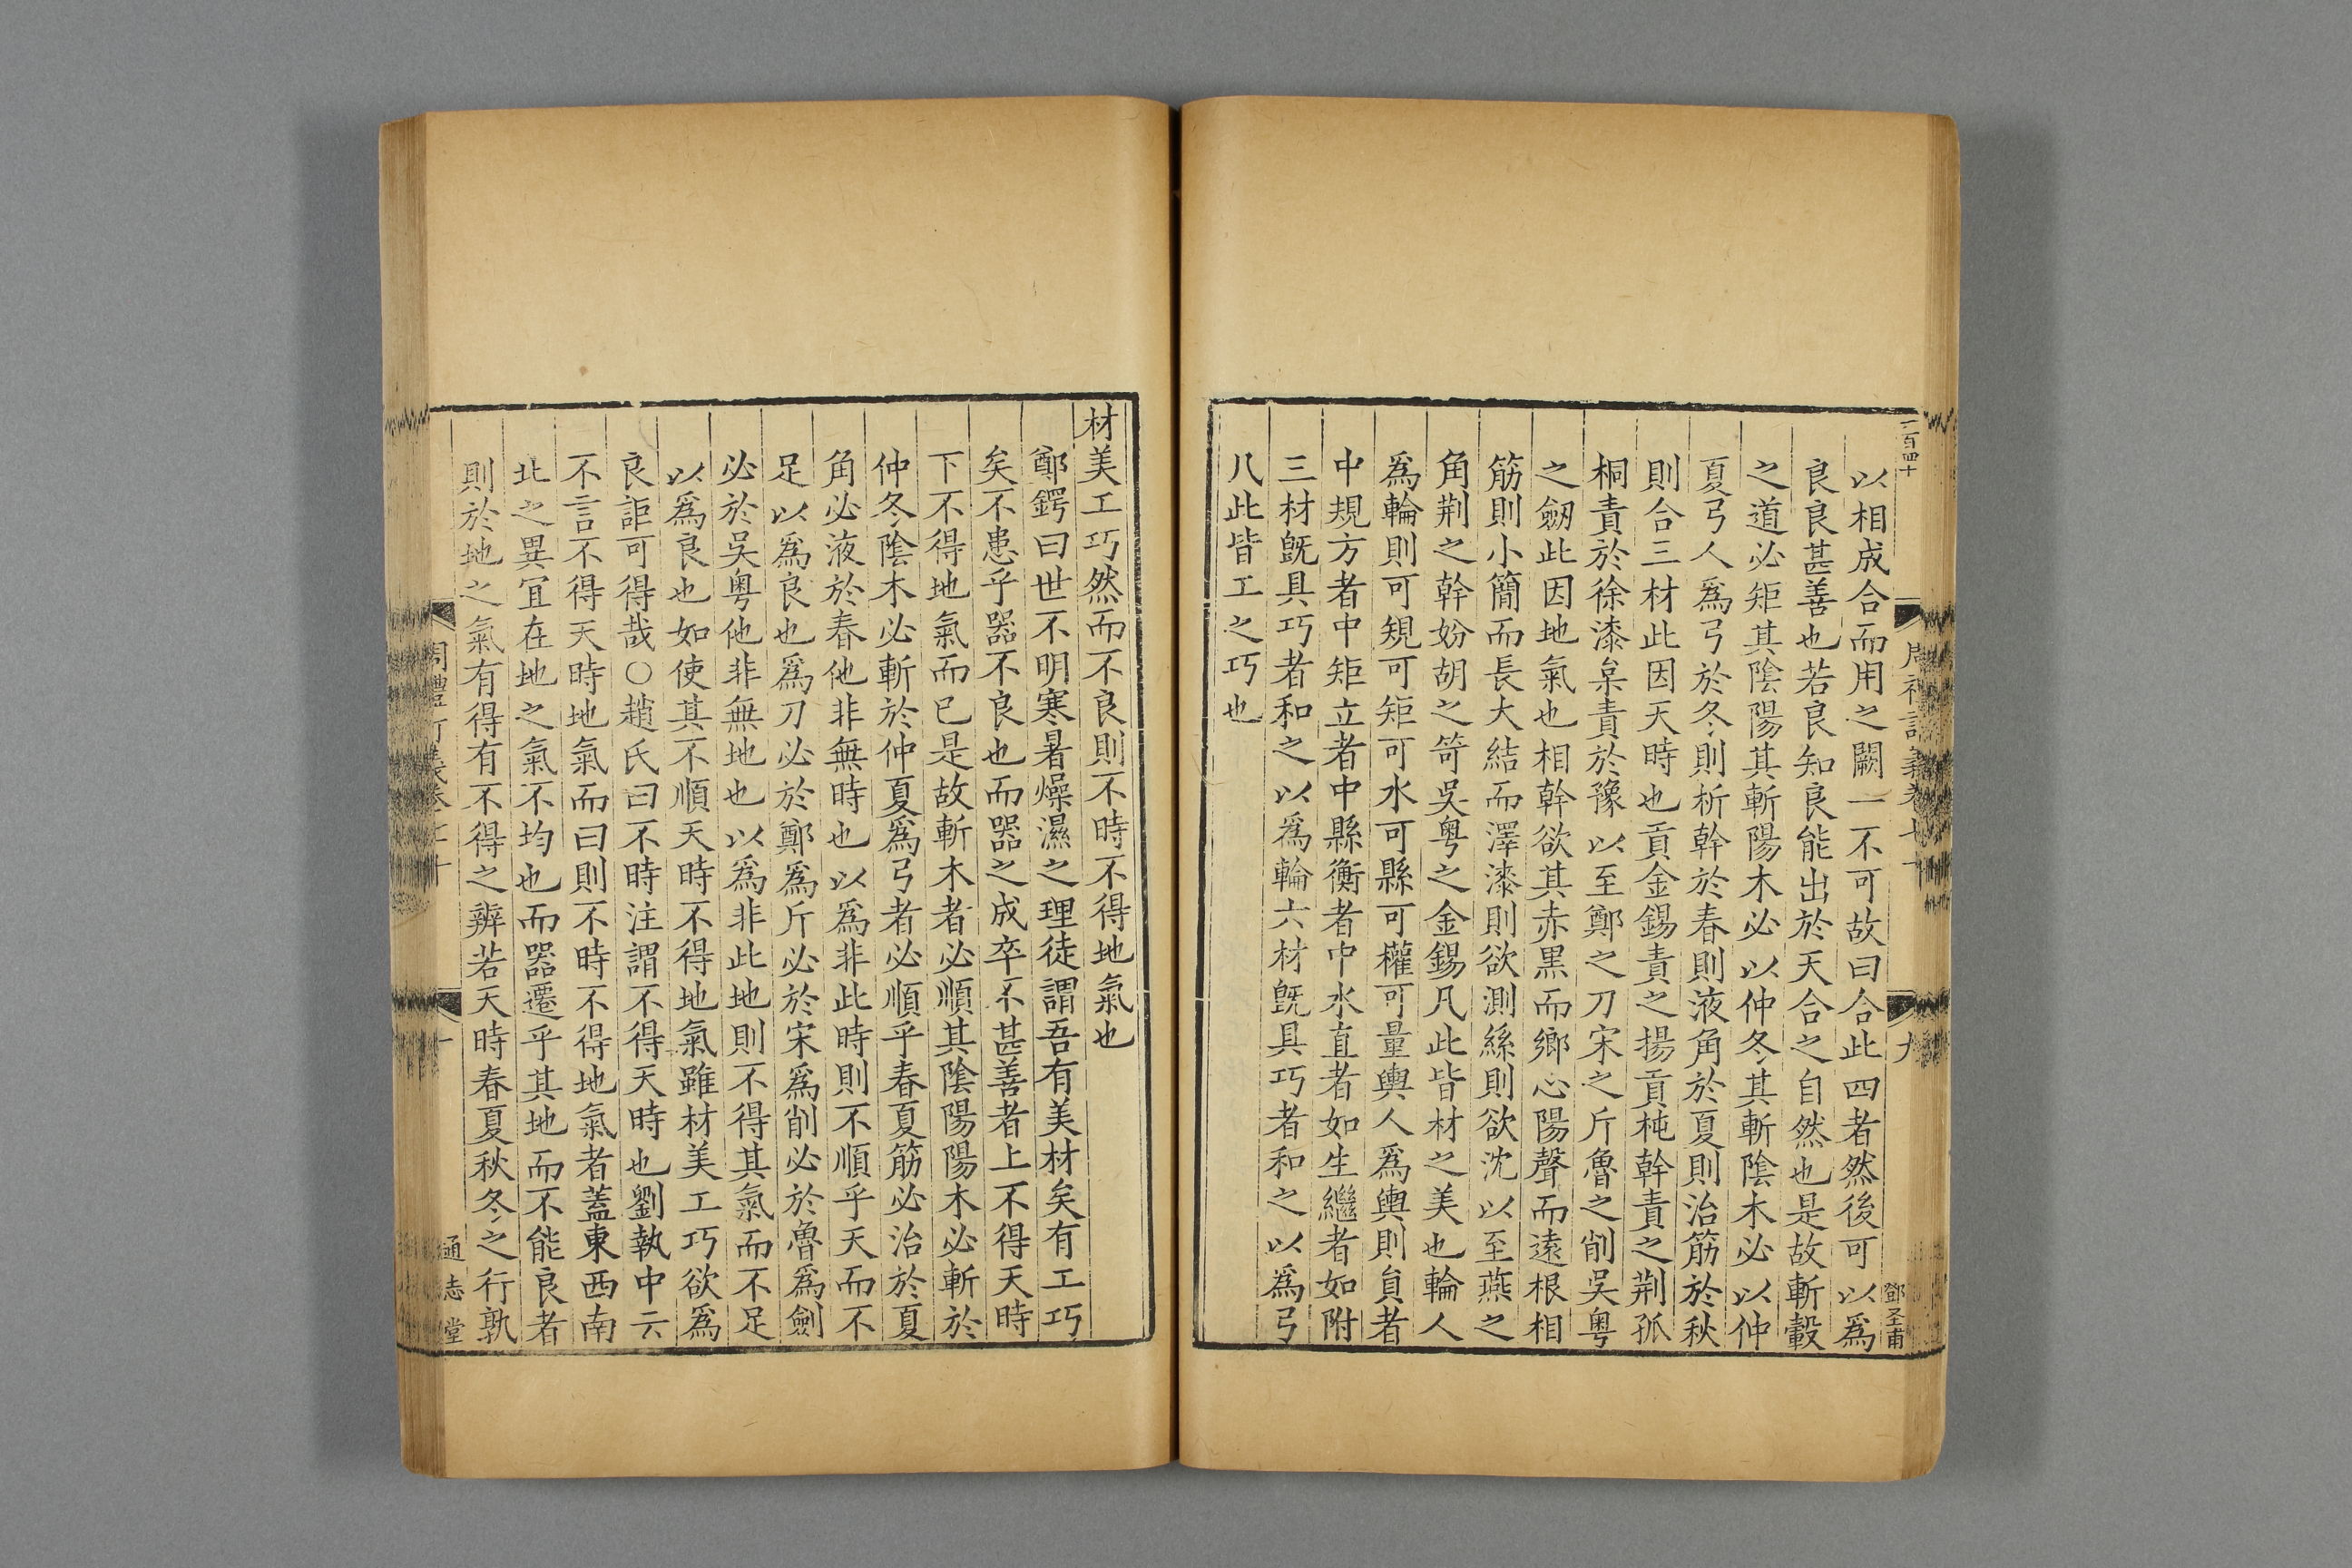 以相成合而用之闕一不可故曰合此四者然後可以為
良良甚善也若良知良能出於天合之自然也是故斬轂
之道必矩其陰陽其斬陽木必以仲冬其斬陰木必以仲
夏弓人為弓於冬則析幹於春則液角於夏則治筋於秋
則合三材此因天時也貢金錫責之揚貢杶幹責之荆孤
桐責於徐漆枲責於豫以至鄭之刀宋之斤魯之削吳粵
之劒此因地氣也相幹欲其赤黑而鄉心陽聲而遠根相
筋則小簡而長大結而澤漆則欲測絲則欲沈以至燕之
角荆之幹妢胡之笴吳粵之金錫凡此皆材之美也輪人
為輪則可規可矩可水可縣可權可量輿人為輿則貟者
中規方者中矩立者中縣衡者中水直者如生繼者如附
三材旣具巧者和之以為輪六材旣具巧者和之以為弓
凡此皆工之巧也
二百四十
九
鄧圣甫
材美工巧然而不良則不時不得地氣也
鄭鍔曰世不明寒暑燥濕之理徒謂吾有美材矣有工巧
矣不患乎器不良也而器之成卒不甚善者上不得天時
下不得地氣而已是故斬木者必順其陰陽陽木必斬於
仲冬陰木必斬於仲夏為弓者必順乎春夏筋必治於夏
角必液於春他非無時也以為非此時則不順乎天而不
足以為良也為刀必於鄭為斤必於宋為削必於魯為劍
必於吳粵他非無地也以為非此地則不得其氣而不足
以為良也如使其不順天時不得地氣雖材美工巧欲為
良詎可得哉○趙氏曰不時注謂不得天時也劉執中云
不言不得天時地氣而曰則不時不得地氣者蓋東西南
北之異冝在地之氣不均也而器遷乎其地而不能良者
則於地之氣有得有不得之辨若天時春夏秋冬之行孰
通志堂